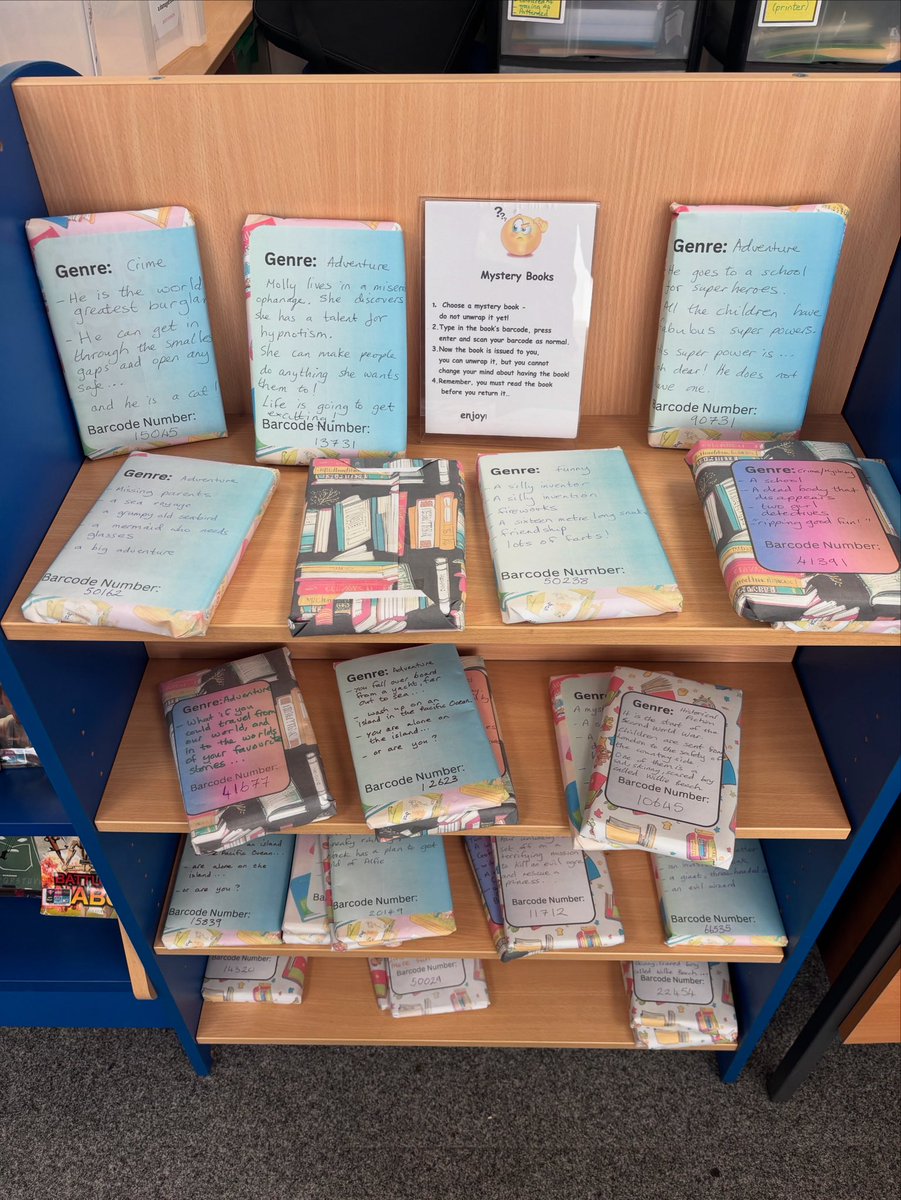 (printer)
Genre: Crime
- He is the world
greatest burglar
- He can get in
through the smalles
gaps and open any
safe...
and he is a cat!
Barcode Number:
15045
Genre: Adventure
Molly lives in a misera
ophanage. She discovers
she has a talent for
hypnotism.
She can make people
do anything she wants
them to!
Life is going to get
Barcode Number:
13731
???
Mystery Books
1. Choose a mystery book -
do not unwrap it yet!
2. Type in the book's barcode, press
enter and scan your barcode as normal.
3. Now the book is issued to you,
you can unwrap it, but you cannot
change your mind about having the book!
4. Remember, you must read the book
before you return it..
enjoy!
Genre: Adventure
He goes to a school
for superheroes.
All the children have
fabulous super powers.
is super power is ...
h dear! He does not
ave one.
Barcode Number:
90731
Genre: Adventure
Missing parents
a sea voyage
a grumpy old seabird
a mermaid who needs
glasses
a big adventure
Barcode Number:
50162
Genre: Funny
A silly inventor
A silly invention
fireworks
A sixteen metre long snake
friendship
lots of farts!
Barcode Number:
50238
Genre: Crime/Mystery
- A school
- A dead body that
disappears
- two girl
detectives
"ripping good fun!"
Barcode Number:
41391
Genre: Adventure
- What if you
could travel from
our world, and
in to the worlds
of your favourite
stories...
Barcode Number:
41677
Genre: Adventure
- you fall over board
from a yacht, far
out to sea...
- wash up on an
island in the Pacific Ocean.
- you are alone on
the island...
- or are you?
Barcode Number:
12623
Genre:
Genre: Historical
Fiction
It is the start of the
Second World War.
Children are sent from
London to the safety of
the country side.
One of them is
a sad, strung, scared boy
called Willie Beach.
Barcode Number:
10645
Pacific Ocean.
- are alone on the
island...
- or are you?
Barcode Number:
15839
has a plan to get
of Alfie
Barcode Number:
20149
terrifying mission
to kill an evil ogre
and rescue a
princess.
Barcode Number:
11712
a giant, three-headed
an evil wizard
Barcode Number:
66535
Barcode Number:
14320
Barcode Number:
50029
called Willie Beach
Barcode Number:
22454
BATTL